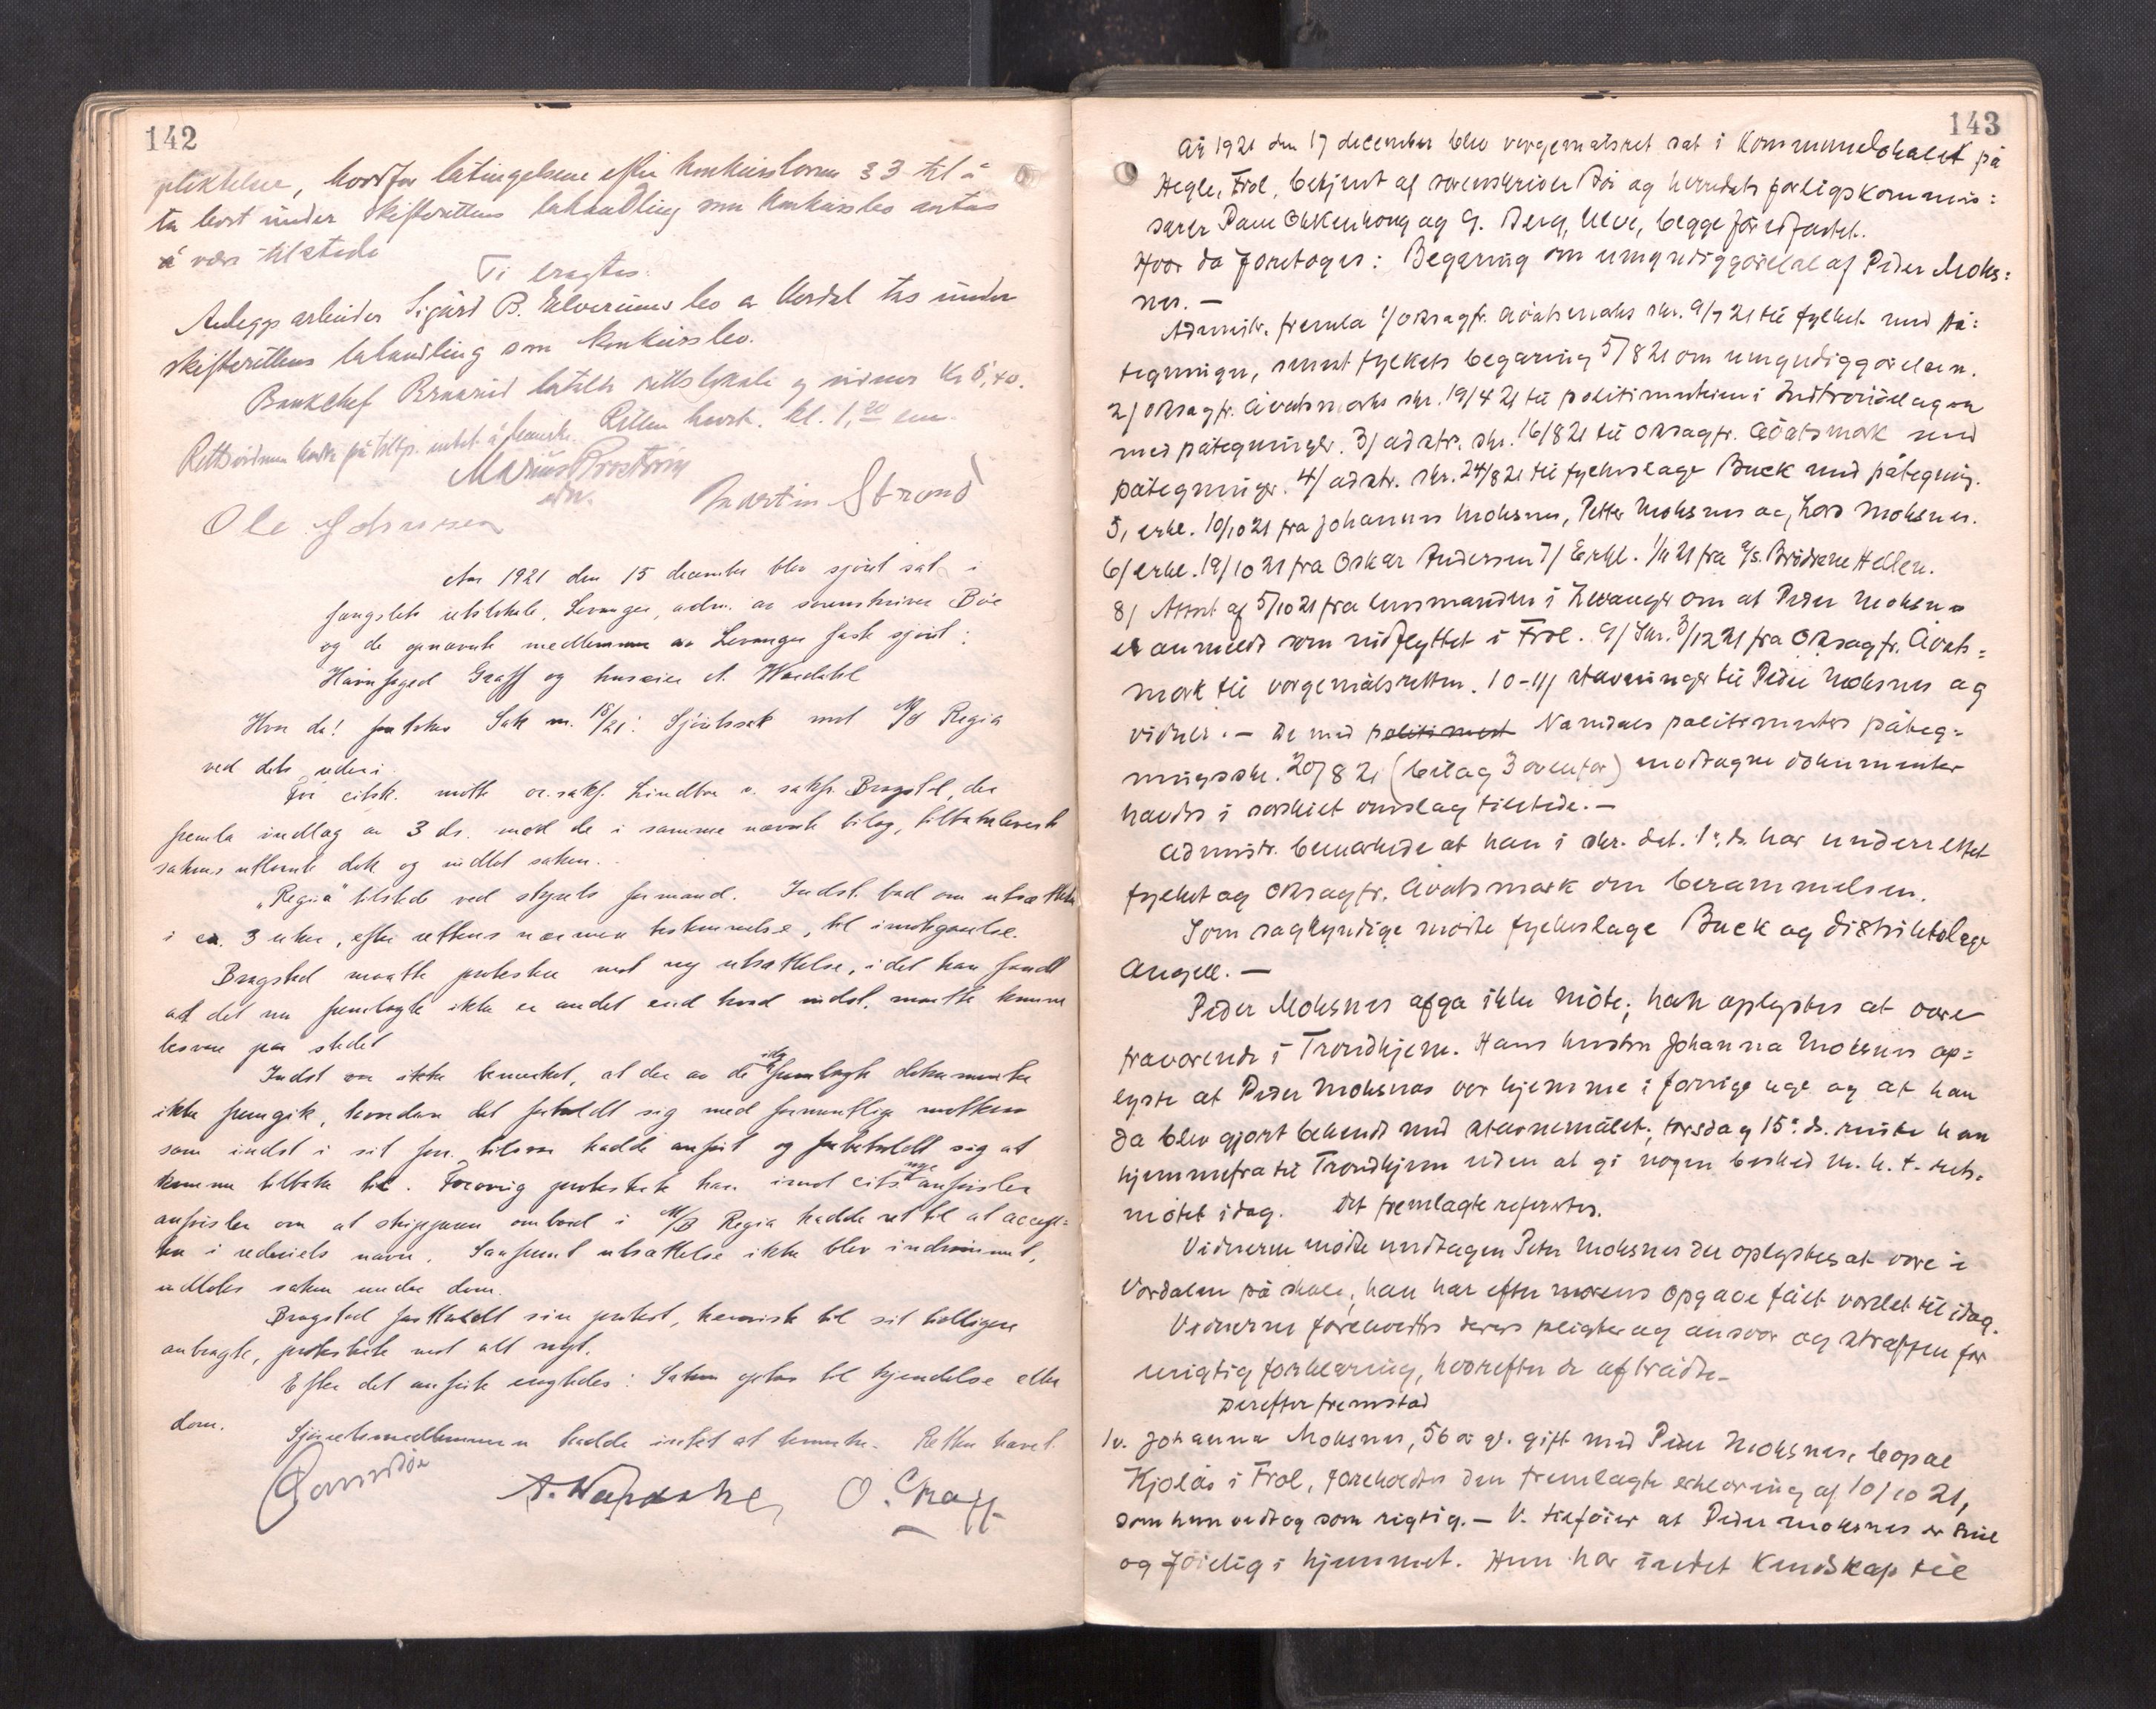 142
pliktelse, hvorfor betingelsene efter konkursloven § 3 til å
ta bort under skifterettens behandling som konkursbo antas
å være tilstede
Ti eragtes:
Anleggsarbeider Sigurd B. Elverums bo av Verdal tas under
skifterettens behandling som konkursbo.
Bankchef betalte rettslokale og vidner kr 8,40.
Rettsvidnene hadde på tilsp. intet å bemerke. Retten hævet. kl. 1,20 em.
Marius Brostrøm
edv.
Martin Strand
Ole Johnsen
Aar 1921 den 15 december blev sjøret sat i
fængslets retslokale, Levanger, adm. av sorenskriver Bøe
og de opnævnte medlemmer av Levanger faste sjøret:
Havnefoged Graff og huseier A. Wardahl
Hvor da! foretokes Sak nr. 18/21: Sjøretssak mot M/S Regia
ved dets rederi.
For citsk. møtte or.sakf. Lindboe v. sakfr. Bragstad, der
fremla indlæg av 3 ds. med de i samme nævnte bilag, tilbakeleverte
sakens utlaante dok og indlot saken.
"Regia" tilstede ved styrets formand. Indst. bad om utsættelse
i ca. 3 uker, efter rettens nærmere bestemmelse, til imøtegaaelse.
Bragstad maatte protestere mot ny utsættelse, idet han fandt
at det nu fremlagte ikke er andet end hvad indst. maatte kunne
besvare paa stedet
Indst ikke bemerket, at der av de idag fremlagte dokumenter
ikke fremgik, hvordan det forholdt sig med
som indst i sit tilsvar hadde anført og forbeholdt sig at
komme tilbake til. Forøvrig protesterte han imot cits. nye anførsler
anførsler om at skipperen ombord i M/S Regia hadde ret til at accep=
tere i rederiets navn. Saafremt utsættelse ikke blev indrømmet,
indlotes saken under dom.
Bragstad fastholdt sin protest, henviste til sit tidligere
anbragte, protesterte mot alt nyt.
Efter det anførte eragtedes: Saken optas til kjendelse eller
dom.
Sjøretsmedlemmene hadde intet at bemerke. Retten hævet.
A. Wardahl O. Graff
143
År 1921 den 17 december blev vergemålsret sat i Kommunelokalet på
Hegle, Frol, betjent af sorenskriver Bøe og herredets forligskommis:
særer Paul Okkenhoug og G. Berg, Ulve, begge før edfæstet.
Hvor da foretoges: Begæring om umyndiggjørelse af Peder Moks:
nes.—
Administr. fremla 1/ oRsagfr. Aavatsmarks skr. 9/7 21 til fylket med på:
tegninger, samt fylkets begæring 5/8 21 om umyndiggjørelsen.
2/ oRsagfr. Aavatsmarks skr. 19/4 21 til politimesteren i Indtrøndelagen
med påtegninger. 3/ adstr. skr. 16/8 21 til oRsagfr. Aavatsmark med
påtegninger. 4/ adstr. skr. 24/8 21 til fylkeslæge Buck med påtegning.
5, erkl. 10/10 21 fra Johannes Moksnes, Petter Moksnes og Lars Moksnes.
6/ erkl. 19/10 21 fra Oskar Andersen 7/ Erkl. 1/11 21 fra A/S. Brødrene Hellen.
8/ Attest af 5/10 21 fra lensmanden i Levanger om at Peder Moksnes
er anmeldt som indflyttet i Frol. 9/ Skr. 3/12 21 fra oRsagfr. Aavats=
mark til vergemålsretten. 10-11/ stævninger til Peder Moksnes og
vidner.— De med politimest Namdals politimesters påteg=
ningsskr. 20/8 21 (bilag 3 ovenfor) modtagne dokumenter
havdes i særskilt omslag tilstede.—
Admstr. bemærkede at han i skr. dat. 1. ds. har underrettet
fylket og oRsagfr. Aavatsmark om berammelsen.
Som sagkyndige mødte fylkeslæge Buck og distriktslæge
Angell.—
Peder Moksnes afga ikke møte; han oplystes at være
fraværende i Trondhjem. Hans hustru Johanna Moksnes op=
lyste at Peder Moksnes var hjemme i forrige uge og at han
da blev gjort bekendt med stævnemålet; torsdag 15. ds. reiste han
hjemmefra til Trondhjem uden at gi nogen besked m. h. t. rets=
møtet idag. Det fremlagte refereres.
Vidnerne mødte undtagen Peter Moksnes der oplystes at være i
Værdalen på skole, han har efter morens opgave fået varslet til idag.
Vidnerne foreholdtes deres pligter og ansvar og straffen for
urigtig forklaring, hvorefter de aftrådte.
Derefter fremstod
1v. Johanna Moksnes, 56 år gl. gift med Peder Moksnes, bopæl
Kjølås i Frol, foreholdtes den fremlagte erklæring af 10/10 21,
som hun vedtog som rigtig.— V. tilføier at Peder Moksnes er snil
og føielig i hjemmet. Hun har intet kendskap til